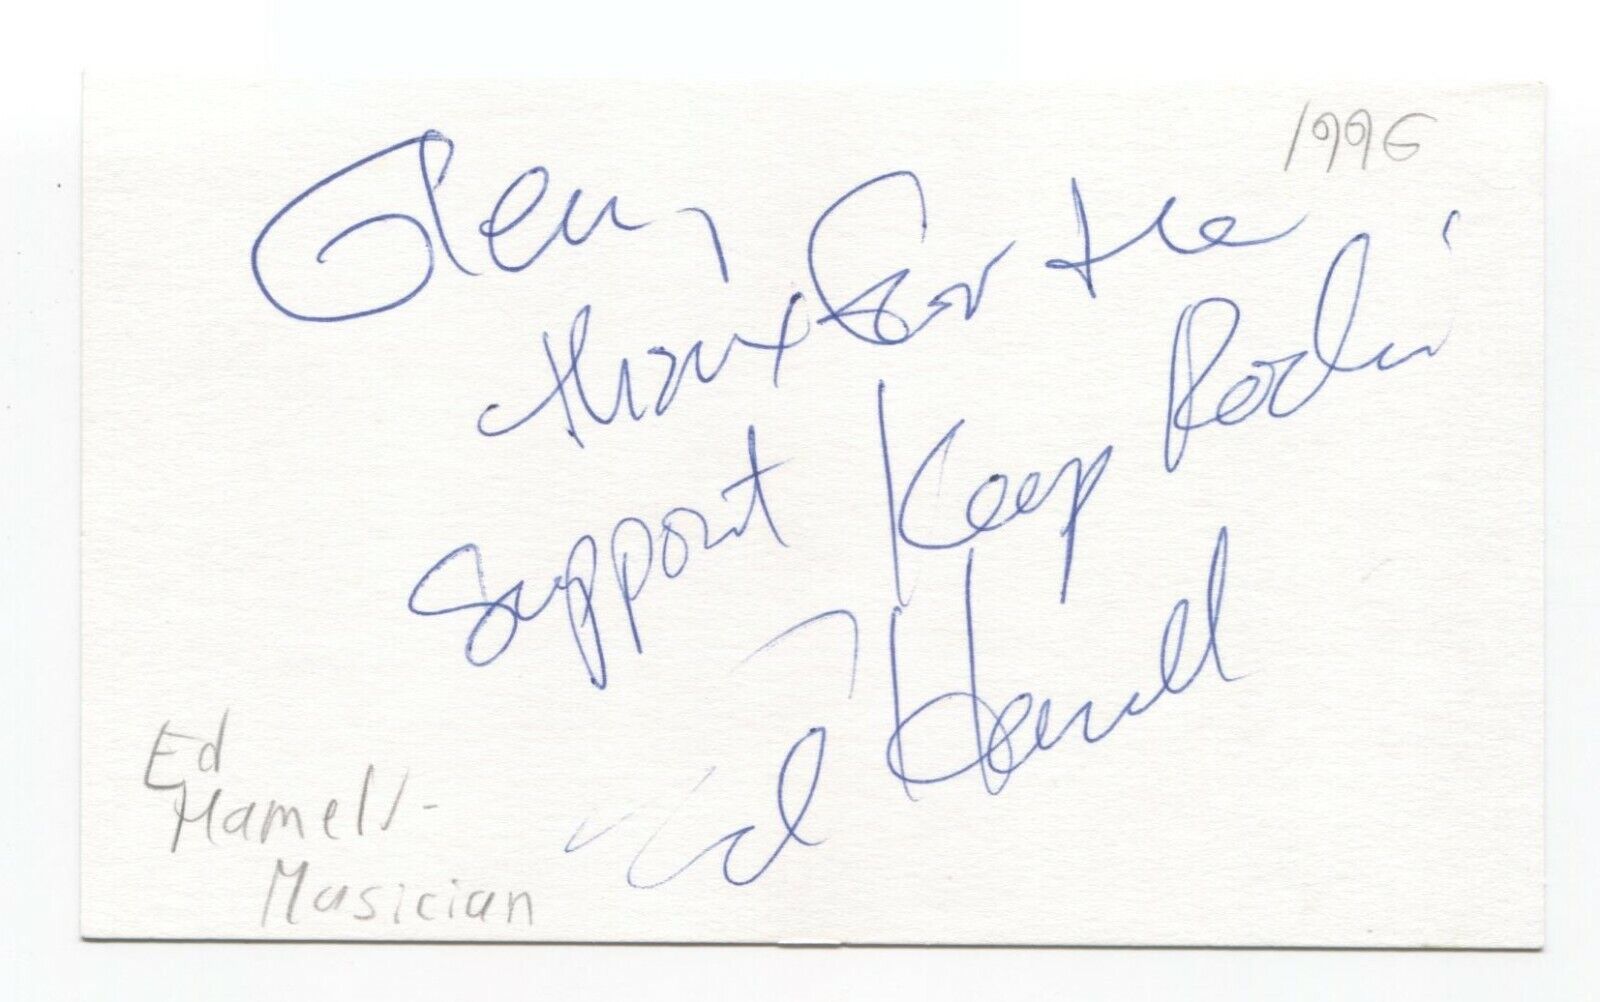 1996
Glen,
thanx for the
support Keep Rockin'
Ed Hamell
Ed
Hamell-
Musician